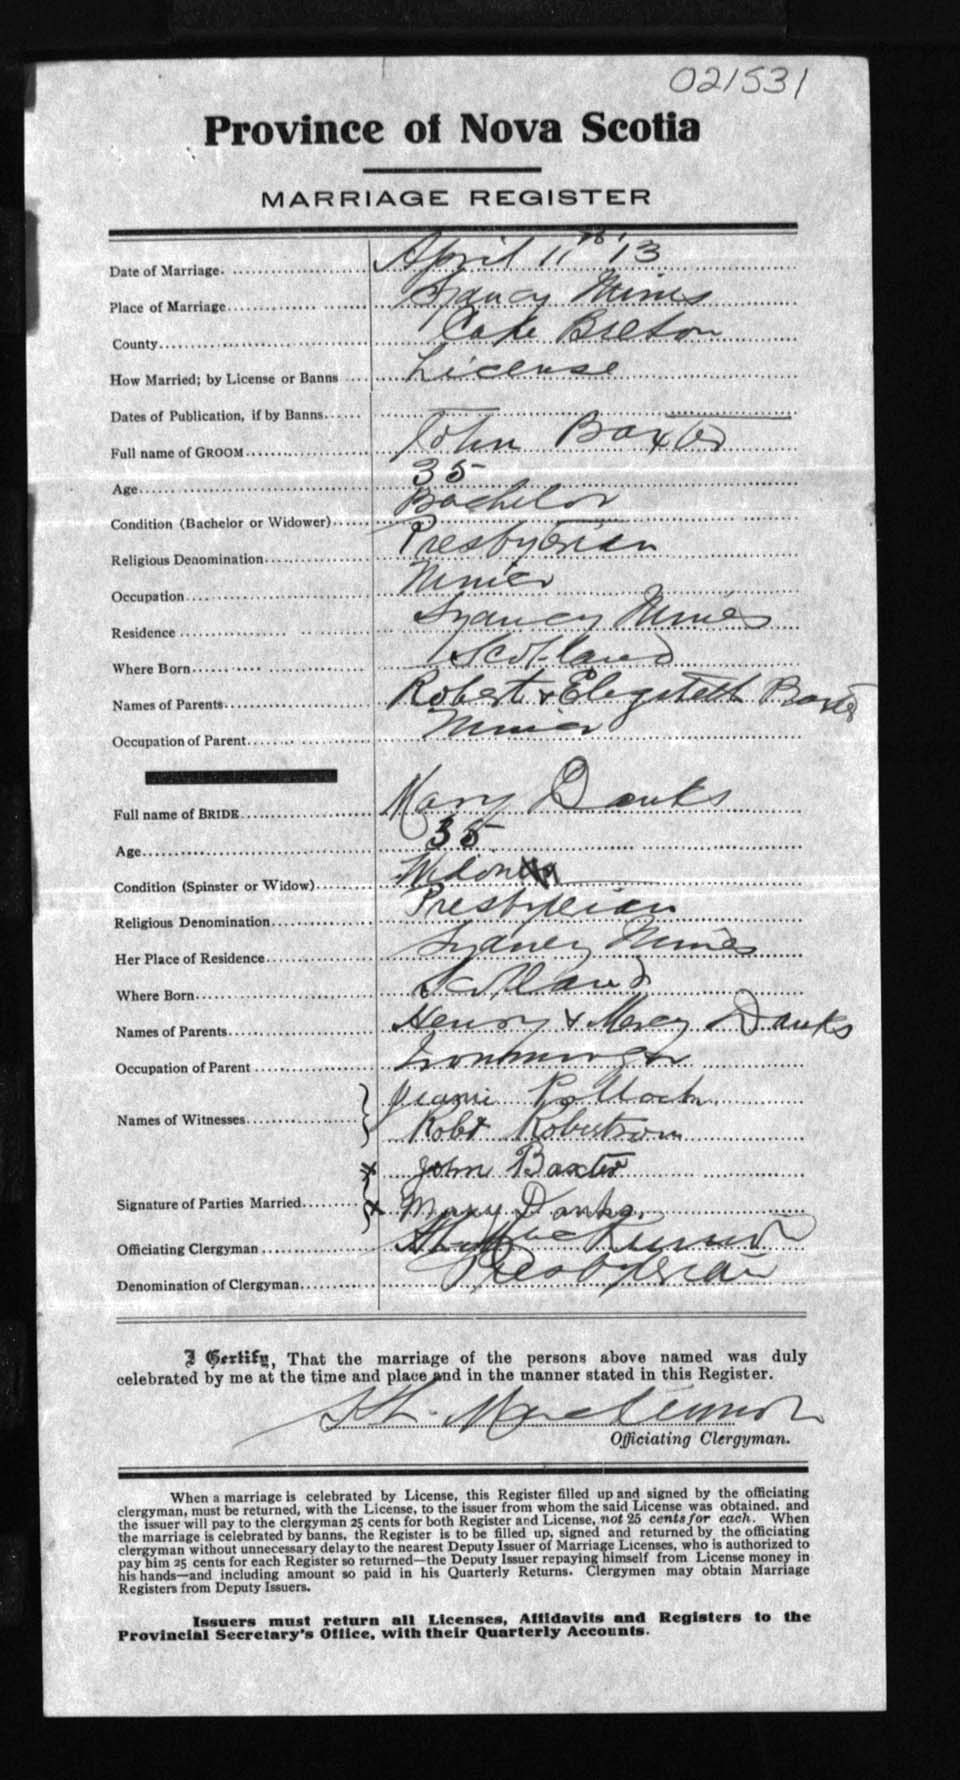 021531
Province of Nova Scotia
MARRIAGE REGISTER
Date of Marriage. April 11th '13
Place of Marriage Sydney Mines
County Cape Breton
How Married; by License or Banns License
Dates of Publication, if by Banns
Full name of GROOM John Baxter
Age 35
Condition (Bachelor or Widower) Bachelor
Religious Denomination Presbyterian
Occupation Miner
Residence Sydney Mines
Where Born Scotland
Names of Parents Robert & Elizabeth Baxter
Occupation of Parent Miner
Full name of BRIDE Mary Danks
Age 35
Condition (Spinster or Widow) Widow
Religious Denomination Presbyterian
Her Place of Residence Sydney Mines
Where Born Scotland
Names of Parents Henry & Mercy Danks
Occupation of Parent Ironmonger
Names of Witnesses Jeanie Pollock
Robt Robertson
x John Baxter
Signature of Parties Married x Mary Danks.
Officiating Clergyman MacKinnon
Denomination of Clergyman Presbyterian
I Certify, That the marriage of the persons above named was duly
celebrated by me at the time and place and in the manner stated in this Register.
MacKinnon
Officiating Clergyman.
When a marriage is celebrated by License, this Register filled up and signed by the officiating
clergyman, must be returned, with the License, to the issuer from whom the said License was obtained, and
the issuer will pay to the clergyman 25 cents for both Register and License, not 25 cents for each. When
the marriage is celebrated by banns, the Register is to be filled up, signed and returned by the officiating
clergyman without unnecessary delay to the nearest Deputy Issuer of Marriage Licenses, who is authorized to
pay him 25 cents for each Register so returned—the Deputy Issuer repaying himself from License money in
his hands—and including amount so paid in his Quarterly Returns. Clergymen may obtain Marriage
Registers from Deputy Issuers.
Issuers must return all Licenses, Affidavits and Registers to the
Provincial Secretary's Office, with their Quarterly Accounts.